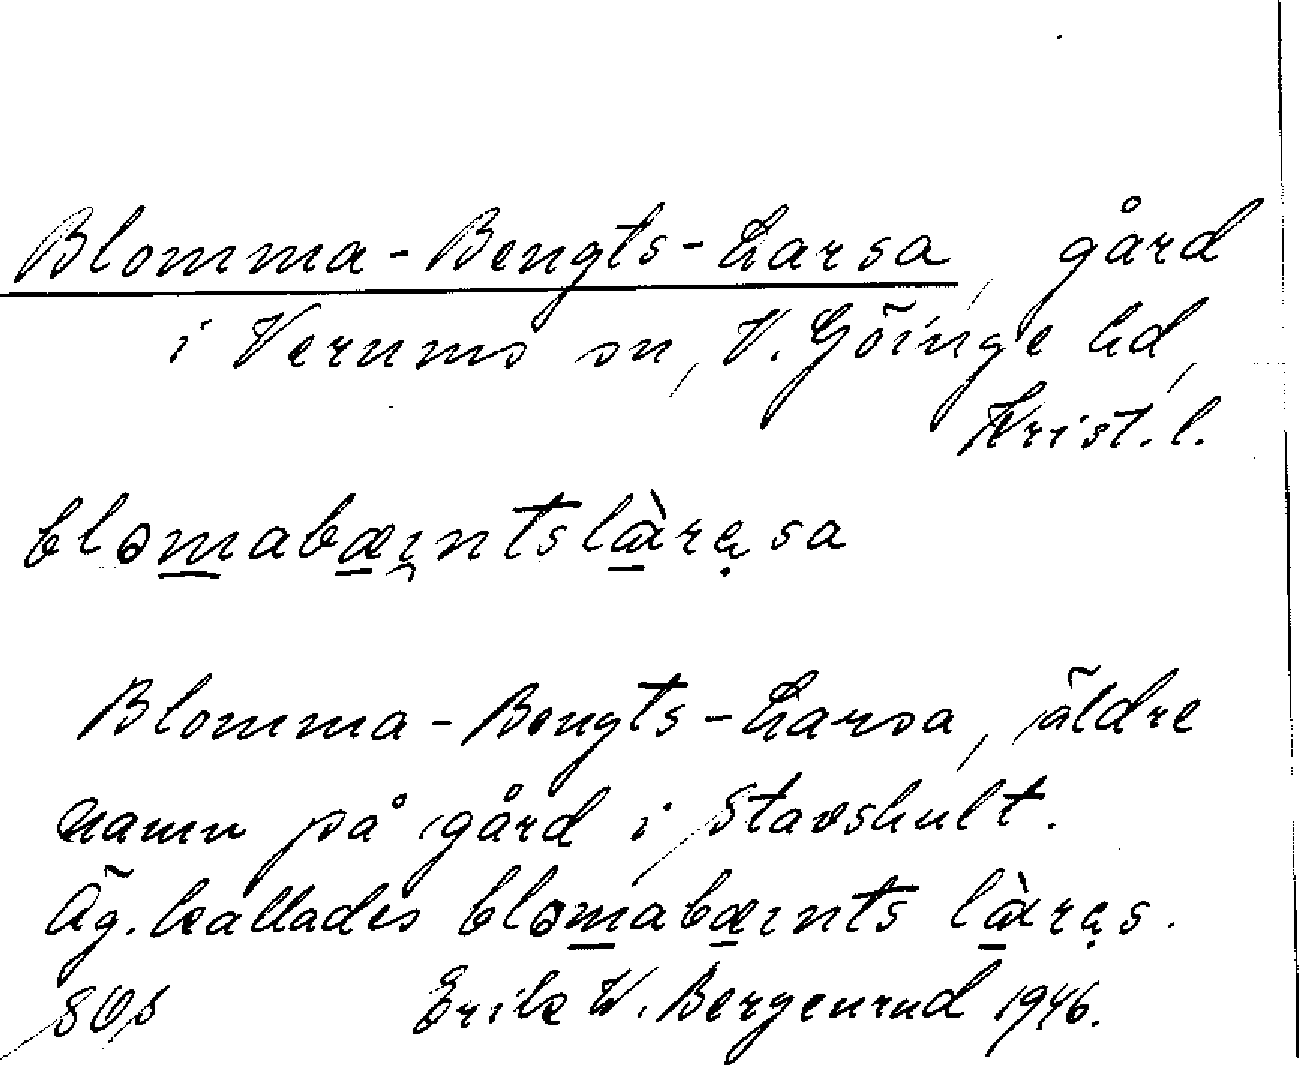 Blomma-Bengts-Larsa, gård
i Verums sn, V. Göinge hd,
Krist. l.
blomabæıntslàrəsa
Blomma-Bengts-Larsa, äldre
namn på gård i Stavshult.
Äg. kallades blomabæınts làrəs.
Erik W. Bergenrud 1946.